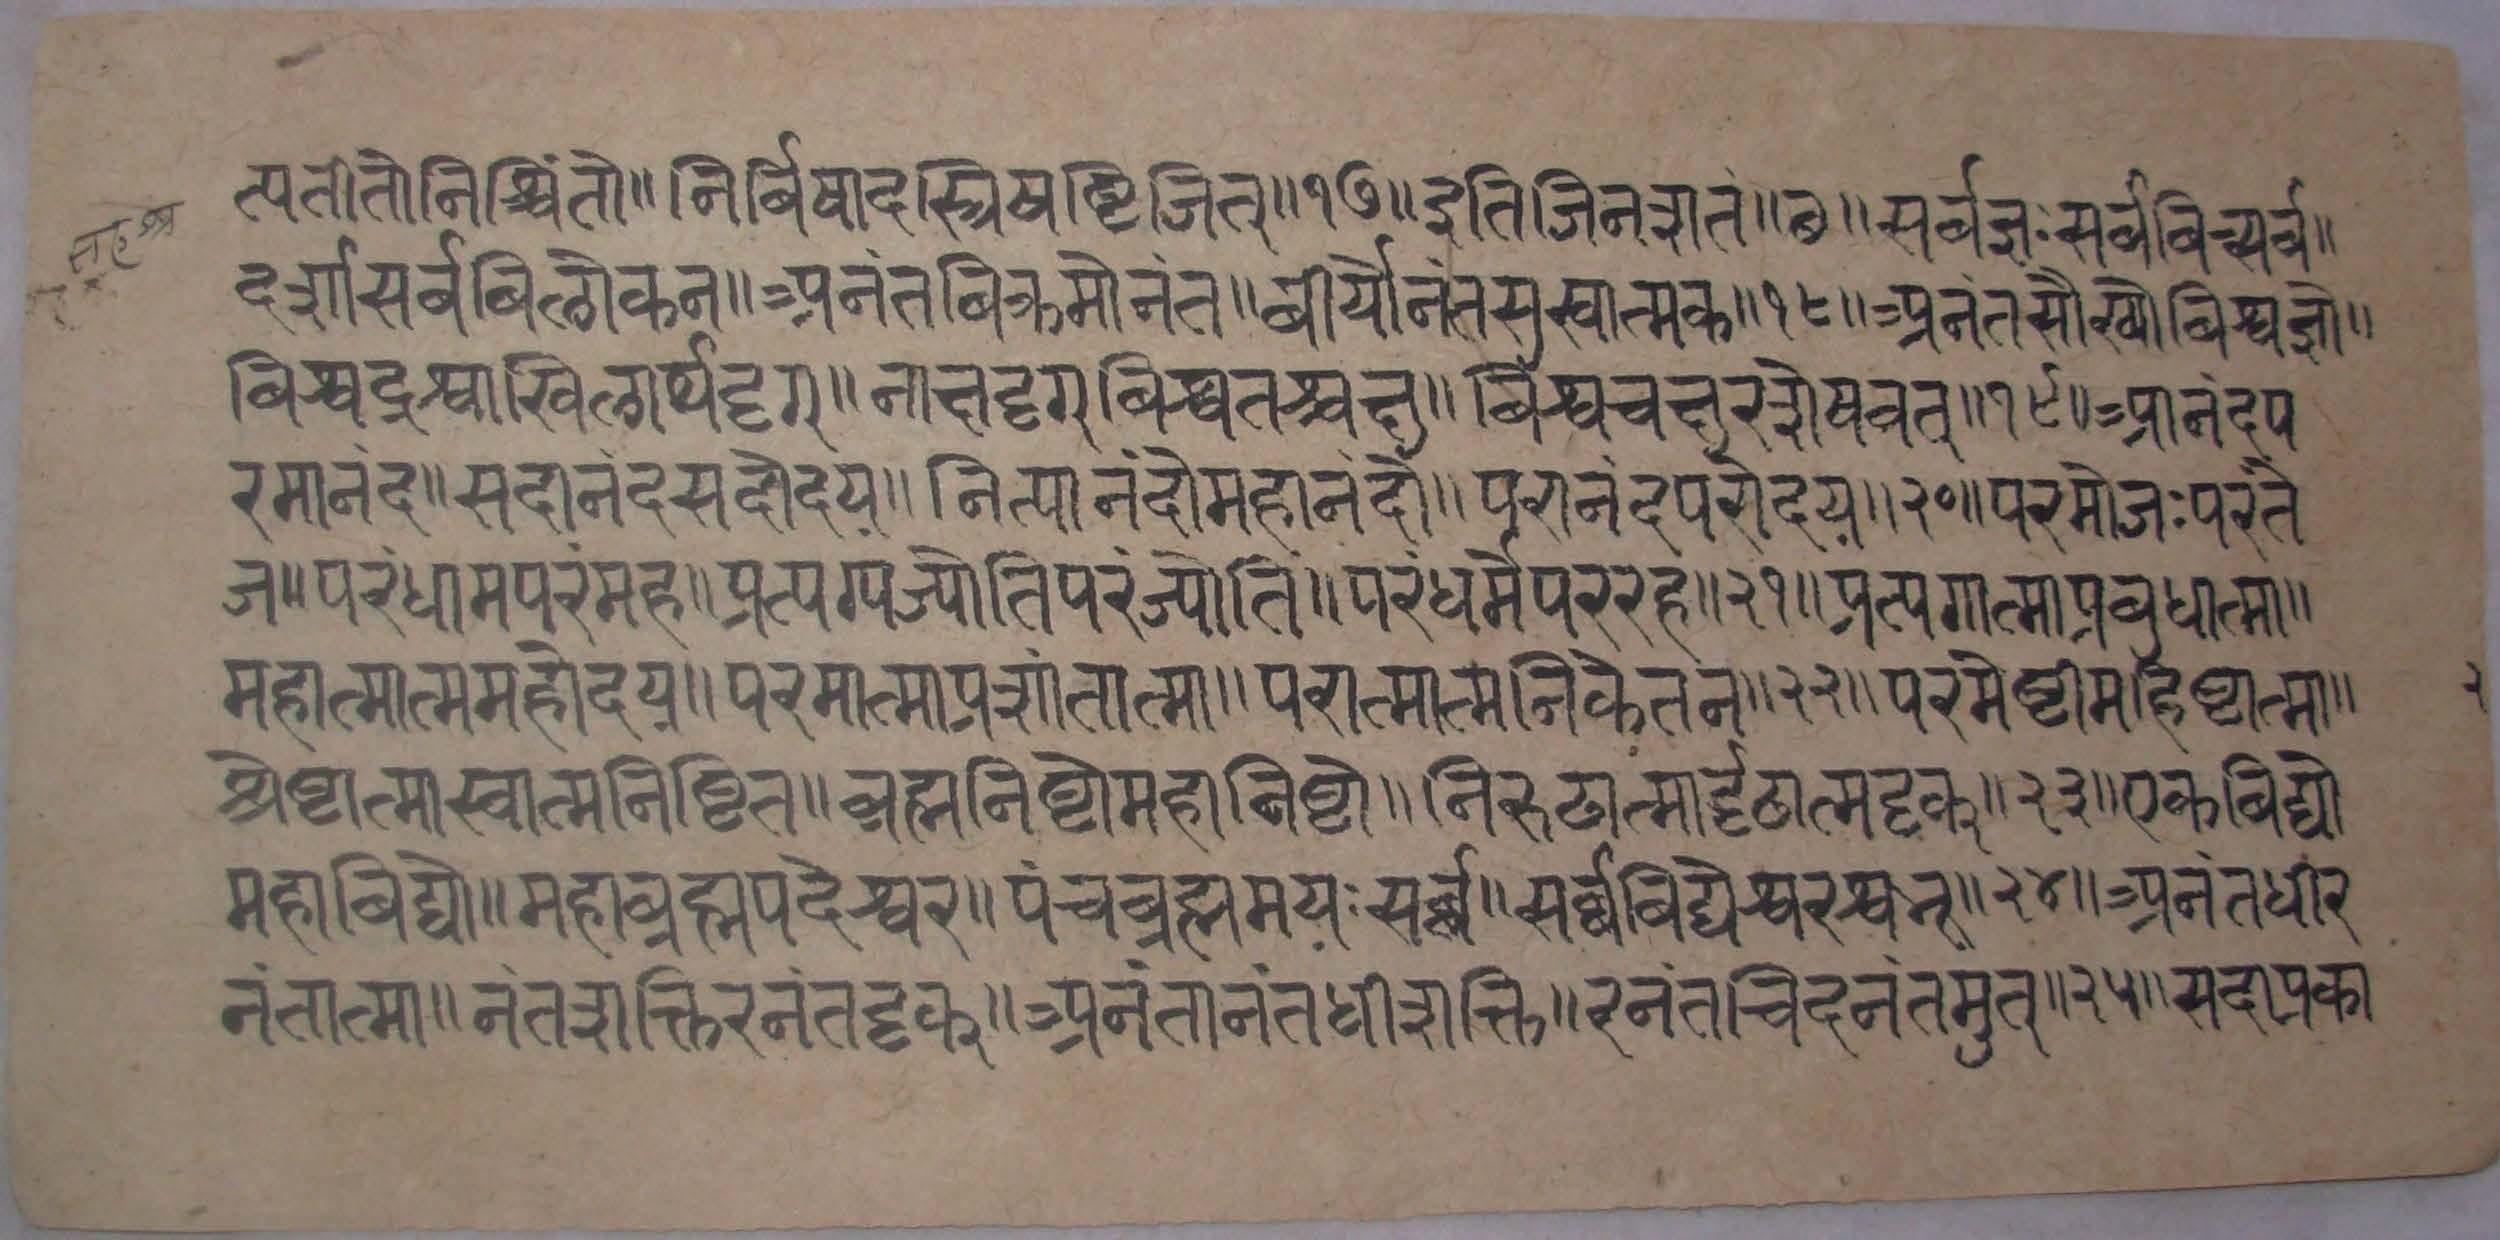 त्पतीतोनिश्चिंतो॥ निर्बिषादस्त्रिषष्टिजित्॥१७॥ इतिजिनशतं॥७॥ सर्बज्ञः सर्बबिच्सर्ब॥
दर्शीसर्बबिलोकन॥ अनंतबिक्रमोनंत॥ बीर्यौनंतसुखात्मक॥१८॥ अनंतसौख्योबिश्वज्ञो॥
बिश्वद्रश्वाखिलार्थदृग्॥ नाक्षदृग्बिश्वतश्चक्षु॥ बिश्वचक्षुरशेषवत्॥१९॥ आनंदप
रमानंद॥ सदानंदसदोदय॥ नित्यानंदोमहानंदो॥ परानंदपरोदय॥२०॥ परमोजःपरंते
ज॥ परंधामपरंमह॥ प्रत्यग्यज्योतिपरंज्योति॥ परंधर्मपररह॥२१॥ प्रत्यगात्माप्रबुधात्मा॥
महात्मात्ममहोदय॥ परमात्माप्रशांतात्मा॥ परात्मात्मनिकेतन॥२२॥ परमेष्टीमहिष्टात्मा॥
श्रेष्टात्मास्वात्मनिष्टित॥ ब्रह्मनिष्टोमहानिष्टो॥ निरुढात्मार्दृढात्मदृक्॥२३॥ एकबिद्यो
महाबिद्यो॥ महाब्रह्मपदेश्वर॥ पंचब्रह्ममयःसर्ब्ब॥ सर्ब्बबिद्येश्वरश्वन्॥२४॥ अनंतधीर
नंतात्मा॥ नंतशक्तिरनंतदृक्॥ अनंतानंतधीशक्ति॥ रनंतचिदनंतमुत्॥२५॥ सदाप्रका
सहश्र
२